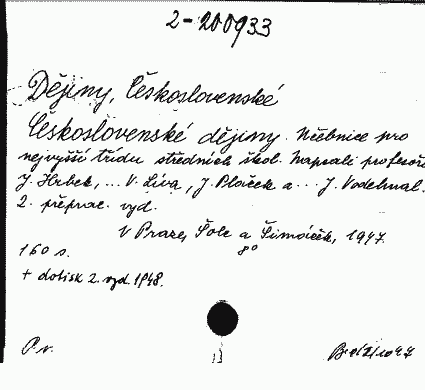 2-200933
Dějiny, Československé
Československé dějiny. Učebnice pro
nejvyšší třídu středních škol. Napsali profesoři
J. Hrbek, ... V. Líva, J. Ploček a ... J. Vodehnal.
2. přeprac. vyd.
V Praze, Šolc a Šimáček, 1947.
160 s. 8°
+ dotisk 2. vyd. 1948.
P. v.